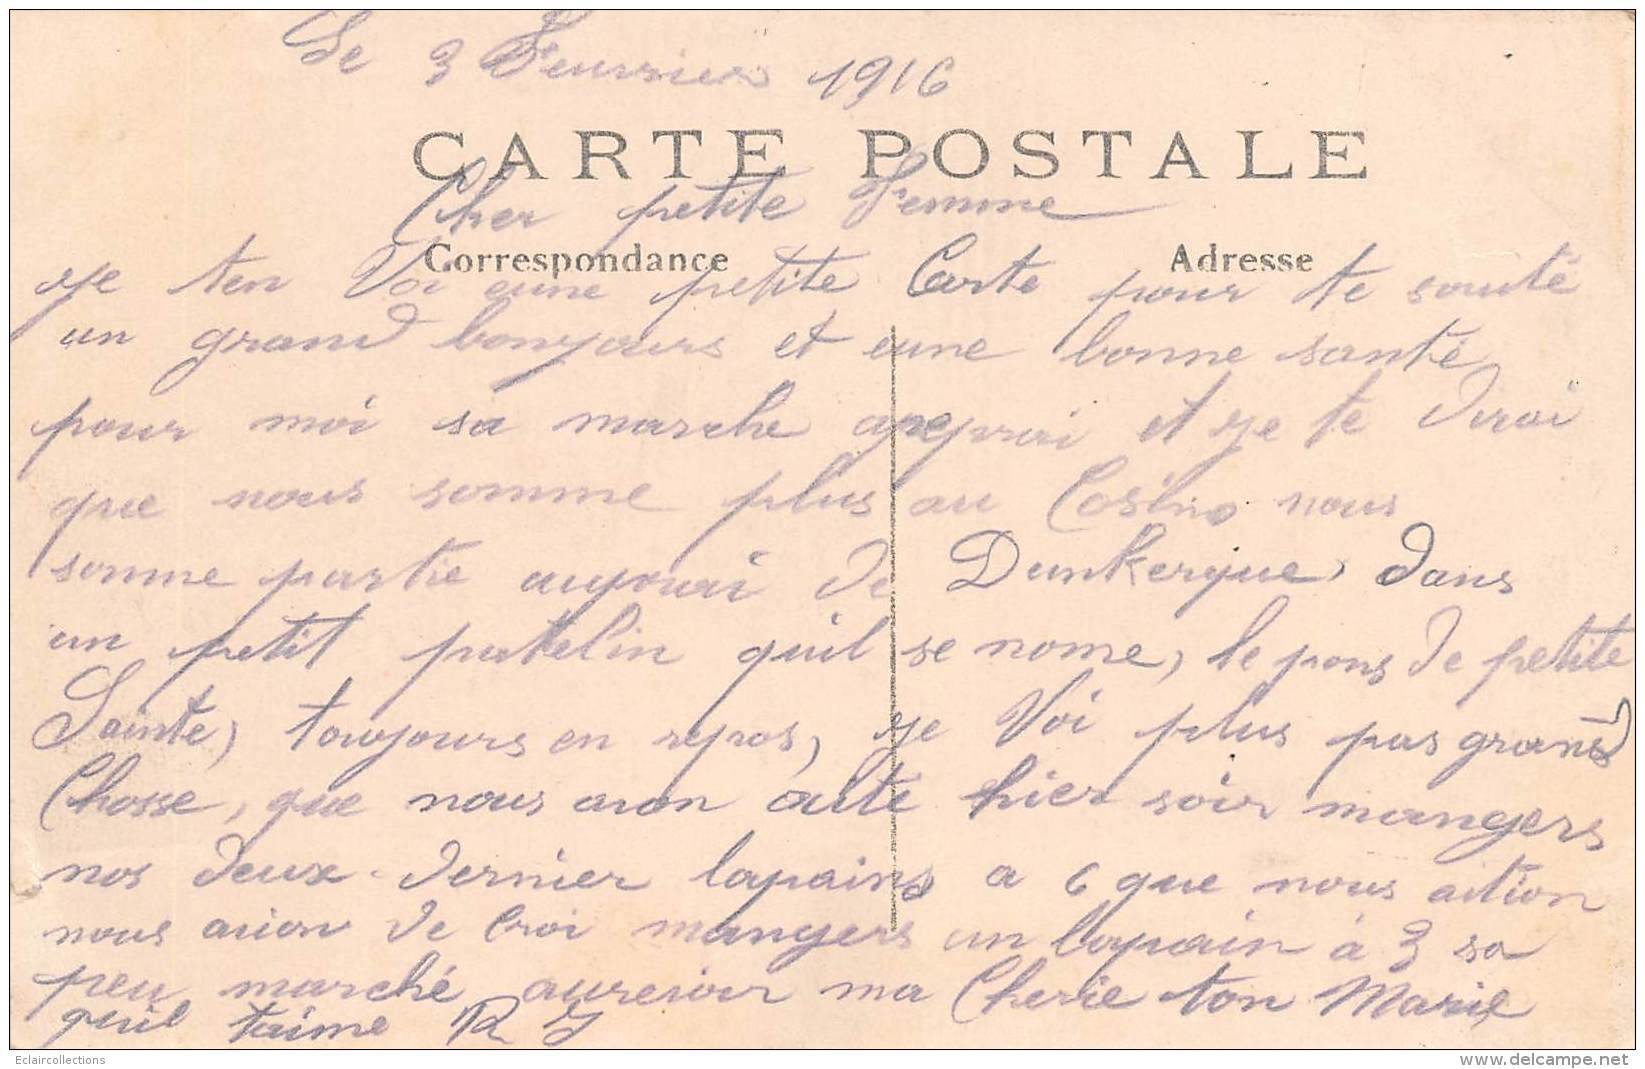 Le 3 Feuvrier 1916
CARTE POSTALE
Cher petite Femme
Correspondance Adresse
ye ten Voi eune petite Carte pour te souté
un grand bonyours et eune bonne santé
pour moi sa marche apeprai et ye te dirai
que nous somme plus au Casino nous
somme partie auyourai de Dunkerque, dans
un petit patelin quil se nome, le pons de petite
Sainte, touyours en repos, ye Voi plus pas grand
Chosse, que nous avon hier soir mangers
nos deux dernier lapains a 6 que nous aition
nous avion de croi mangers un lapain à 3 sa
peu marché aurevoir ma Cherie ton Marie
quil taime R J
Eclaircollections
www.delcampe.net